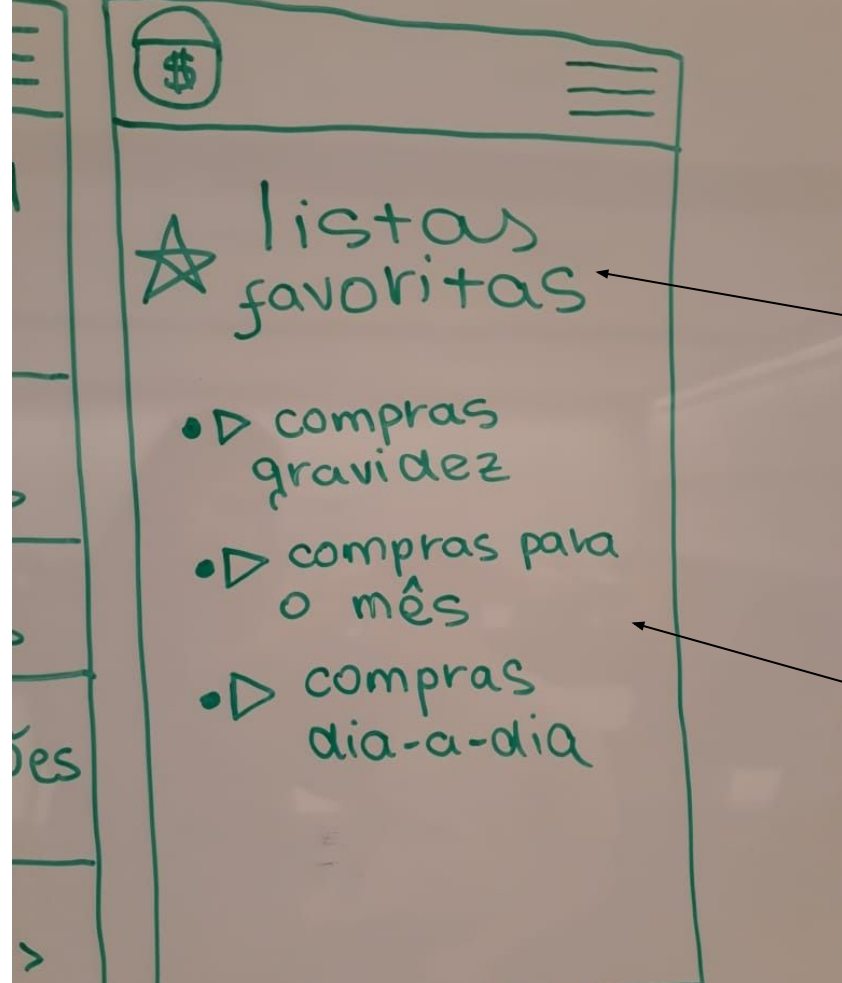 $
listas
favoritas
compras
gravidez
compras para
o mês
compras
dia-a-dia
ões
>